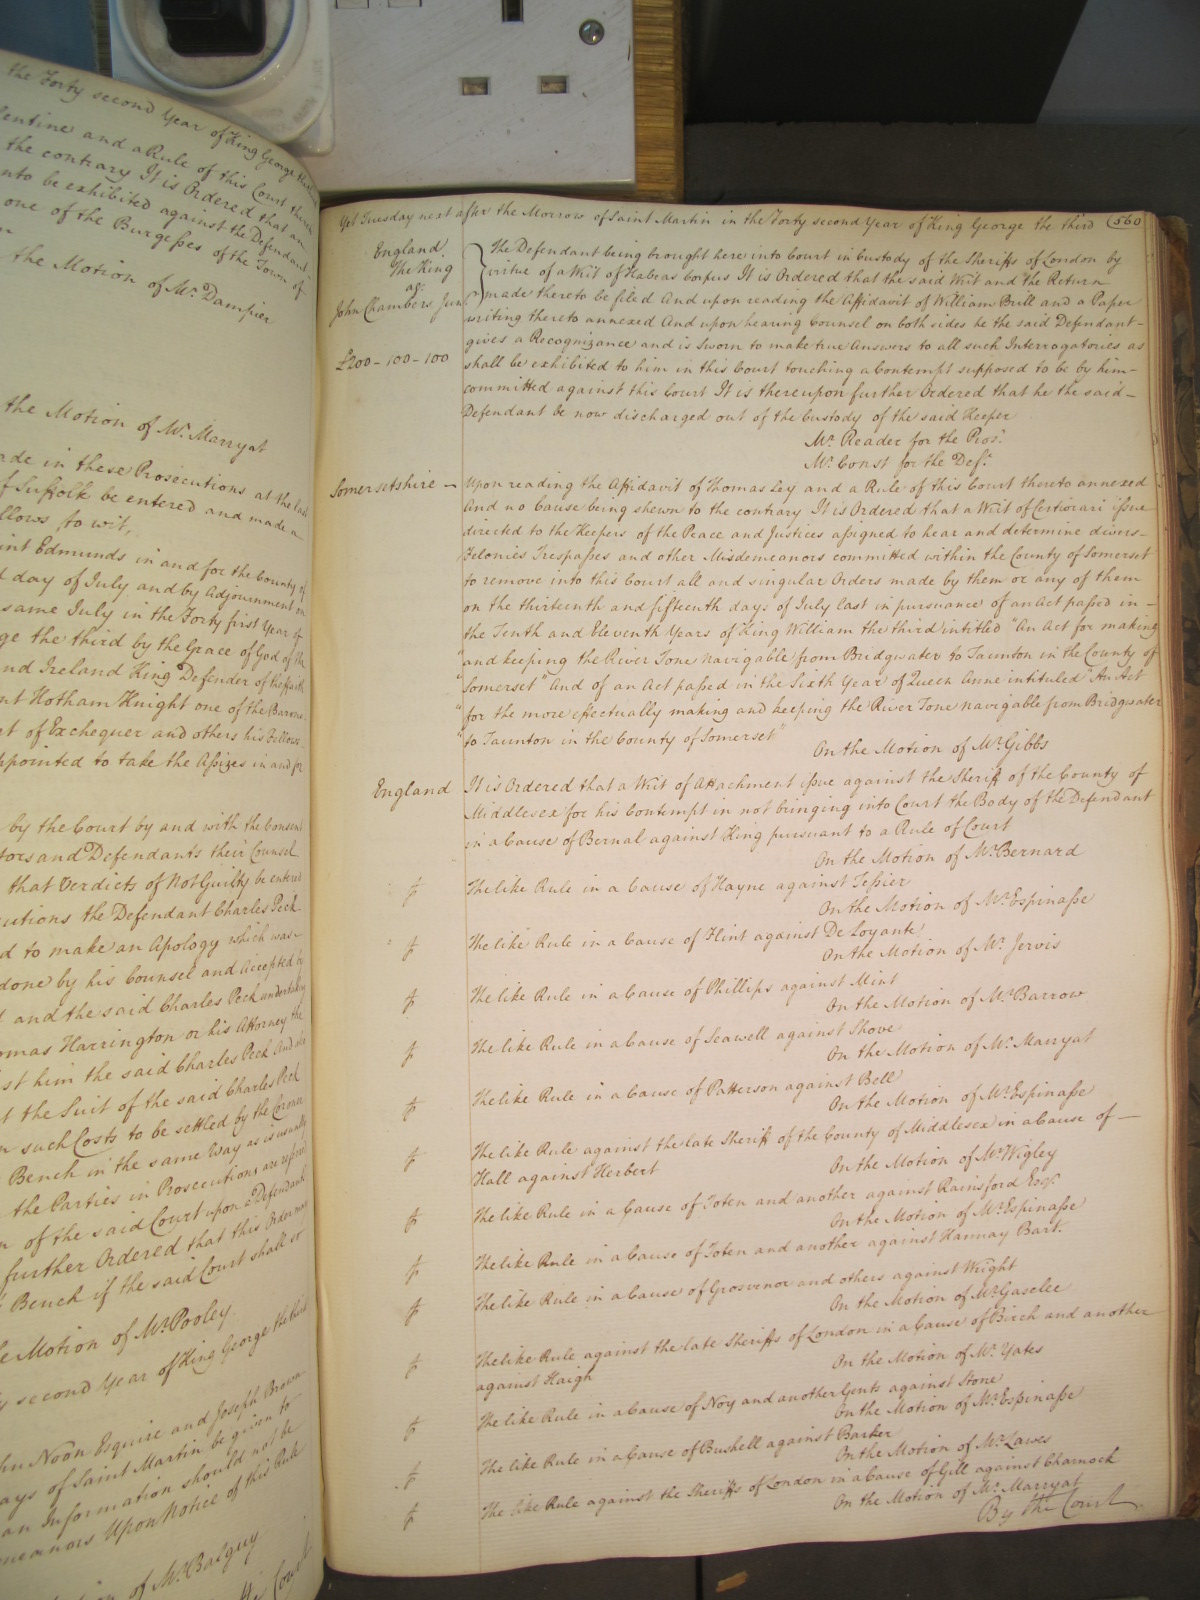 the Forty second Year of King George the third
lentine and a Rule of this Court there
the contrary It is Ordered that an
nto be exhibited against the Defendant
one of the Burgesses of the Town of
the Motion of Mr. Dampier
the Motion of Mr. Marryat
ade in these Prosecutions at the last
f Suffolk be entered and made
llows to wit,
int Edmunds in and for the County of
d day of July and by Adjournment on
same July in the Forty first Year of
ge the third by the Grace of God of the
nd Ireland King Defender of the faith
nt Hotham Knight one of the Barons
t of Exchequer and others his Fellows
ppointed to take the Assizes in and for
by the Court by and with the Consent
tors and Defendants their Counsel
that Verdicts of Not Guilty be entered
cutions the Defendant Charles Peck
d to make an Apology which was
done by his Counsel and Accepted by
and the said Charles Peck undertaking
omas Harrington or his Attorney the
st him the said Charles Peck And also
t the Suit of the said Charles Peck
n such Costs to be settled by the Coroner
Bench in the same Way as is usually
the Parties in Prosecutions are referred
n of the said Court upon a Defendant
further Ordered that this Order may
Bench if the said Court shall so
e Motion of Mr. Pooley
y second Year of King George the third
hn Noon Esquire and Joseph Brown
ays of Saint Martin be given to
an Information should not be
meanors Upon Notice of this Rule
of Mr. Balguy
Court
Yet Tuesday next after the Morrow of Saint Martin in the Forty second Year of King George the third (560
England
The King
agt.
John Chambers Junr.
£200-100-100
The Defendant being brought here into Court in Custody of the Sheriffs of London by
virtue of a Writ of Habeas Corpus It is Ordered that the said Writ and the Return
made thereto be filed And upon reading the Affidavit of William Brill and a Paper
writing thereto annexed And upon hearing Counsel on both sides he the said Defendant-
gives a Recognizance and is Sworn to make true Answers to all such Interrogatories as
shall be exhibited to him in this Court touching a Contempt supposed to be by him-
committed against this Court It is thereupon further Ordered that he the said-
Defendant be now discharged out of the Custody of the said Keeper
Mr. Reader for the Pros.
Mr. Const for the Def.
Somersetshire - Upon reading the Affidavit of Thomas Ley and a Rule of this Court thereto annexed
And no Cause being shewn to the contrary It is Ordered that a Writ of Certiorari issue
directed to the Keepers of the Peace and Justices assigned to hear and determine divers-
Felonies Trespasses and other Misdemeanors committed within the County of Somerset
to remove into this Court all and singular Orders made by them or any of them
on the thirteenth and fifteenth days of July last in pursuance of an Act passed in-
the Tenth and Eleventh Years of King William the third intitled "An Act for making
"and keeping the River Tone navigable from Bridgwater to Taunton in the County of
"Somerset" And of an Act passed in the Sixth Year of Queen Anne intituled "An Act
"for the more effectually making and keeping the River Tone navigable from Bridgwater
"to Taunton in the County of Somerset"
On the Motion of Mr. Gibbs
England It is Ordered that a Writ of Attachment issue against the Sheriff of the County of
Middlesex for his Contempt in not bringing into Court the Body of the Defendant
in a Cause of Bernal against King pursuant to a Rule of Court
On the Motion of Mr. Bernard
The like Rule in a Cause of Hayne against Tessier
On the Motion of Mr. Espinasse
The like Rule in a Cause of Flint against De Loyante
On the Motion of Mr. Jervis
The like Rule in a Cause of Phillips against Mint
On the Motion of Mr. Barrow
The like Rule in a Cause of Seawell against Shove
On the Motion of Mr. Marryat
The like Rule in a Cause of Patterson against Bell
On the Motion of Mr. Espinasse
The like Rule against the late Sheriff of the County of Middlesex in a Cause of -
Hall against Herbert
On the Motion of Mr. Wigley
The like Rule in a Cause of Toten and another against Rainsford Esqr.
On the Motion of Mr. Espinasse
The like Rule in a Cause of Toten and another against Hannay Bart.
The like Rule in a Cause of Grosvenor and others against Wright
On the Motion of Mr. Gaselee
The like Rule against the late Sheriffs of London in a Cause of Birch and another
against Haigh
On the Motion of Mr. Yates
The like Rule in a Cause of Noy and another Gents against Stone
On the Motion of Mr. Espinasse
The like Rule in a Cause of Bushell against Barker
On the Motion of Mr. Lawes
The like Rule against the Sheriffs of London in a Cause of Gill against Charnock
On the Motion of Mr. Marryat
By the Court